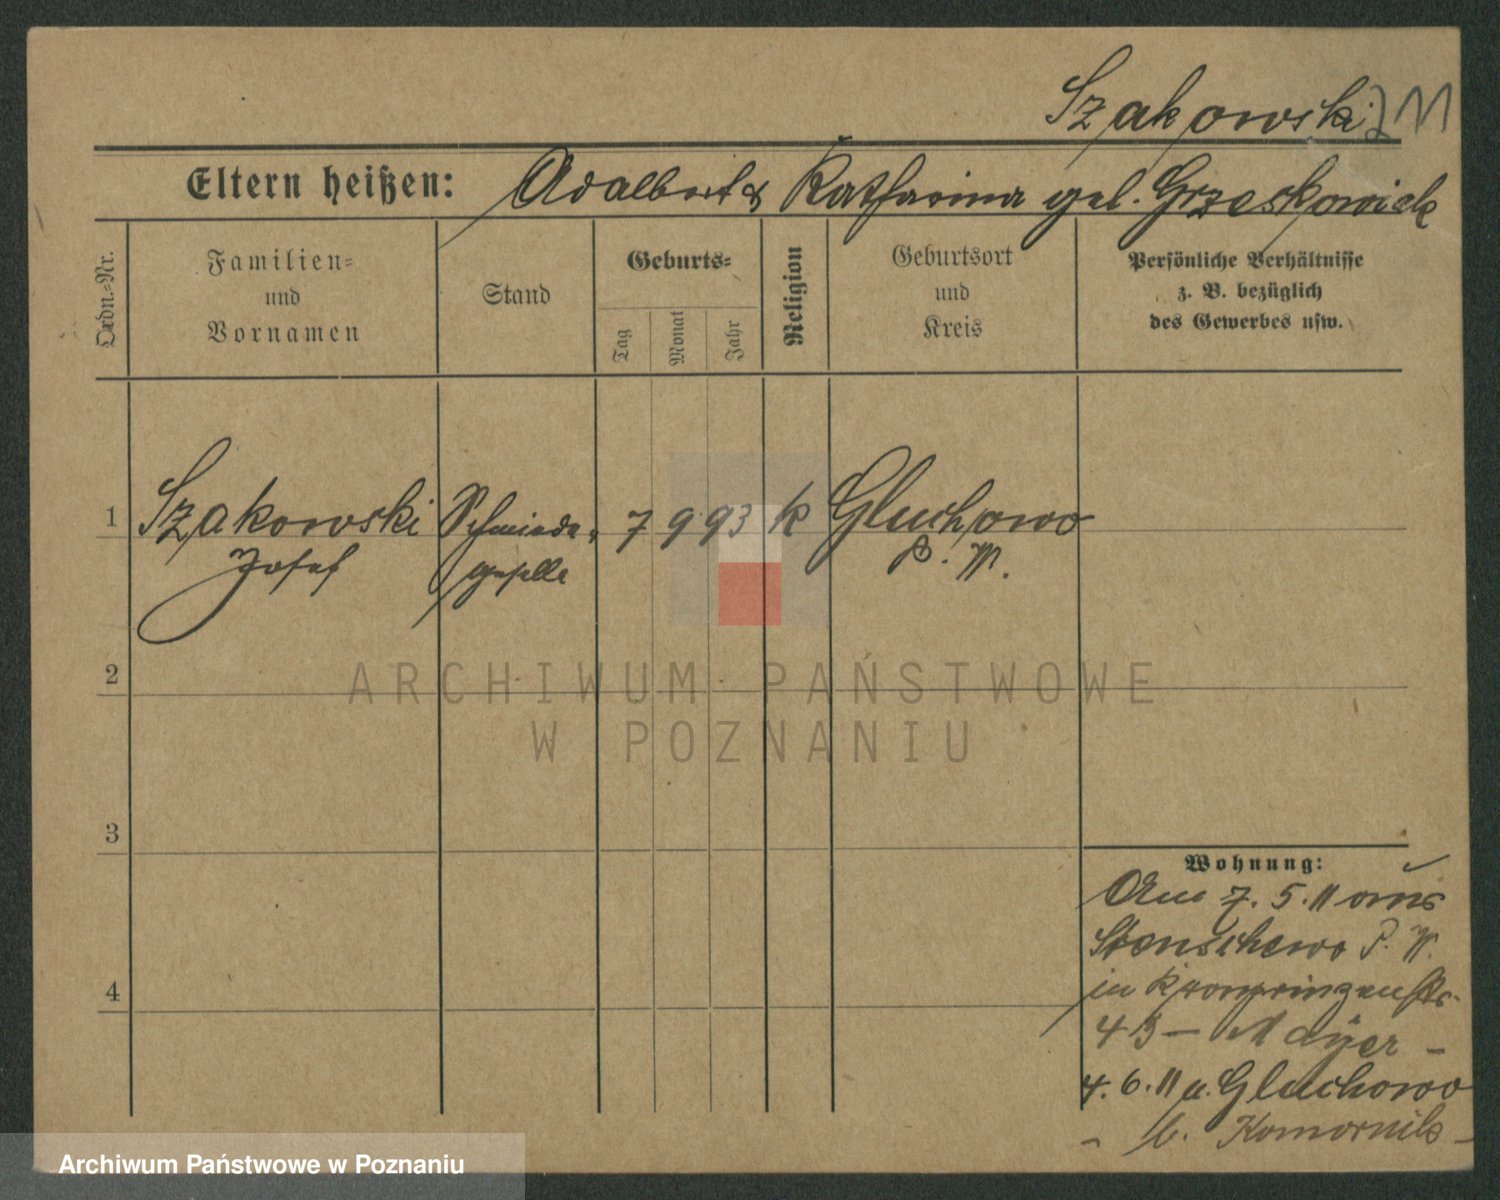 Szakowski 211
Eltern heißen: Adalbert & Katharina geb. Grzeskowiak
Ordn.-Nr.
Familien-
und
Vornamen
Stand
Geburts-
Tag
Monat
Jahr
Religion
Geburtsort
und
Kreis
Persönliche Verhältnisse
z. B. bezüglich
des Gewerbes usw.
1 Szakowski Schmiede- 7 9 93 k Gluchowo
Josef geselle P. W.
2
ARCHIWUM PAŃSTWOWE
W POZNANIU
3
Wohnung:
Am 7. 5. 11 aus
Stenschewo P. W.
in Kronprinzenstr.
43 – Mayer –
4. 6. 11 n. Gluchowo
- b. Komornik -
4
Archiwum Państwowe w Poznaniu